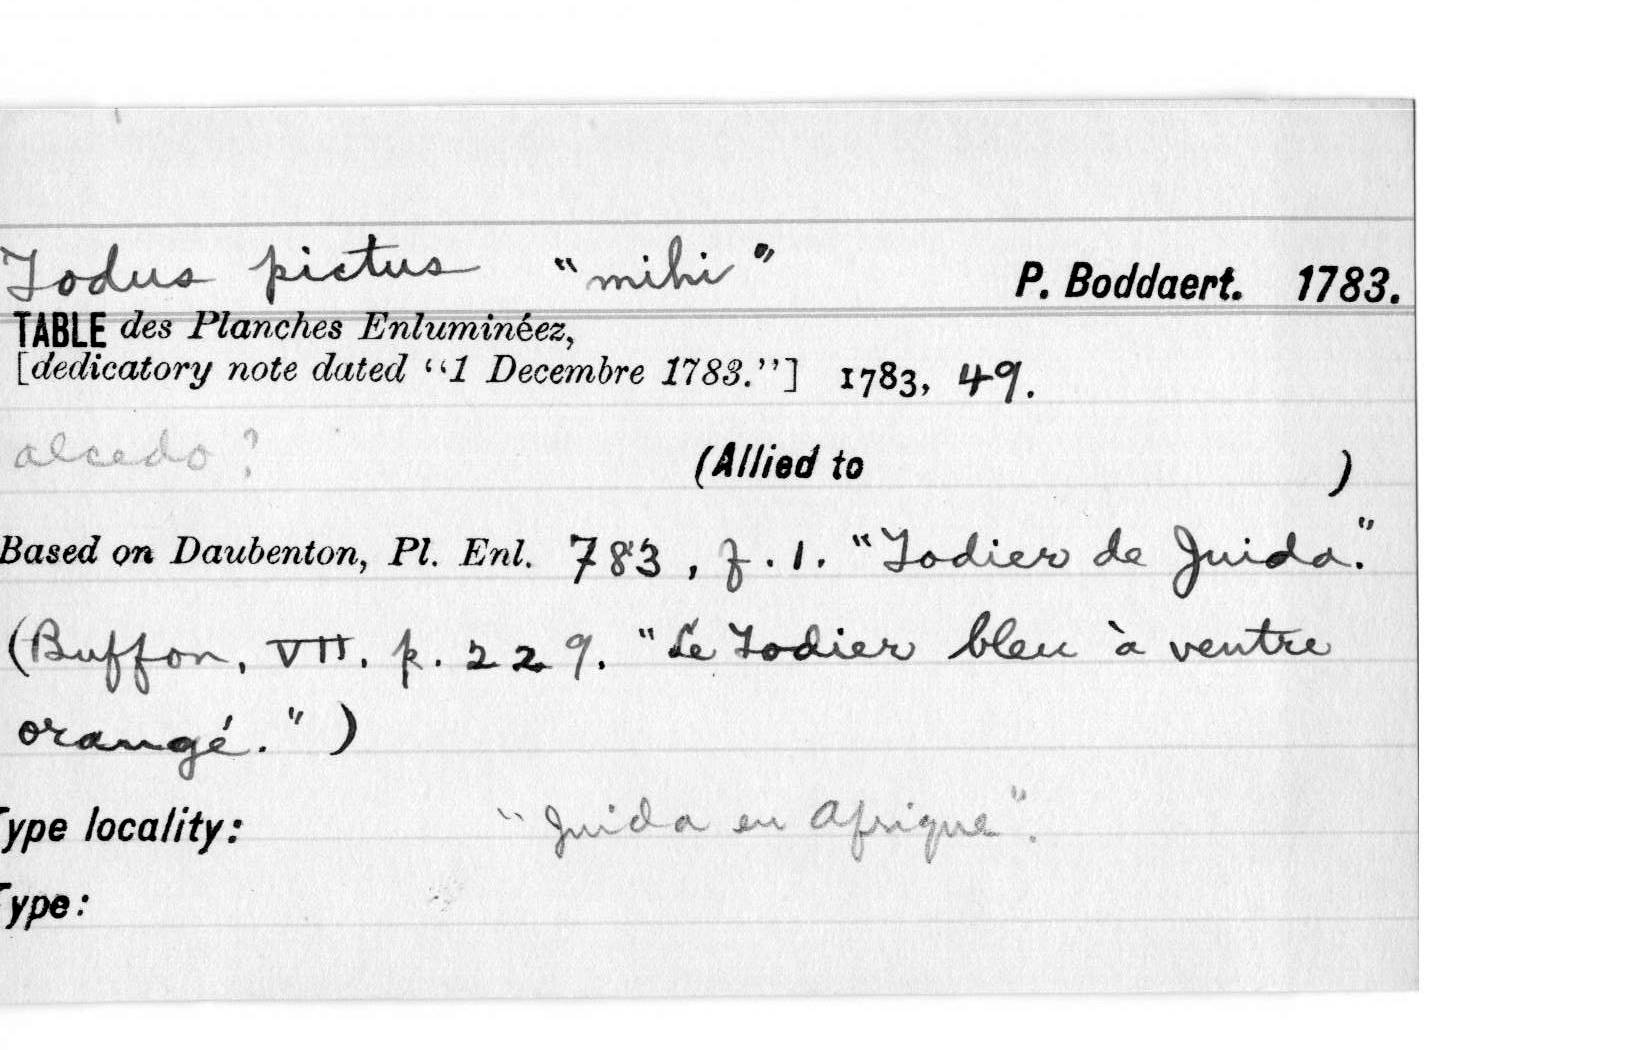 Todus pictus "mihi" P. Boddaert. 1783.
TABLE des Planches Enluminéez,
[dedicatory note dated "1 Decembre 1783."] 1783, 49.
alcedo? (Allied to )
Based on Daubenton, Pl. Enl. 783, f. 1. "Todier de Juida."
(Buffon, VII. p. 229. "Le Todier bleu à ventre
orangé.")
Type locality: "Juida en Afrique".
Type: